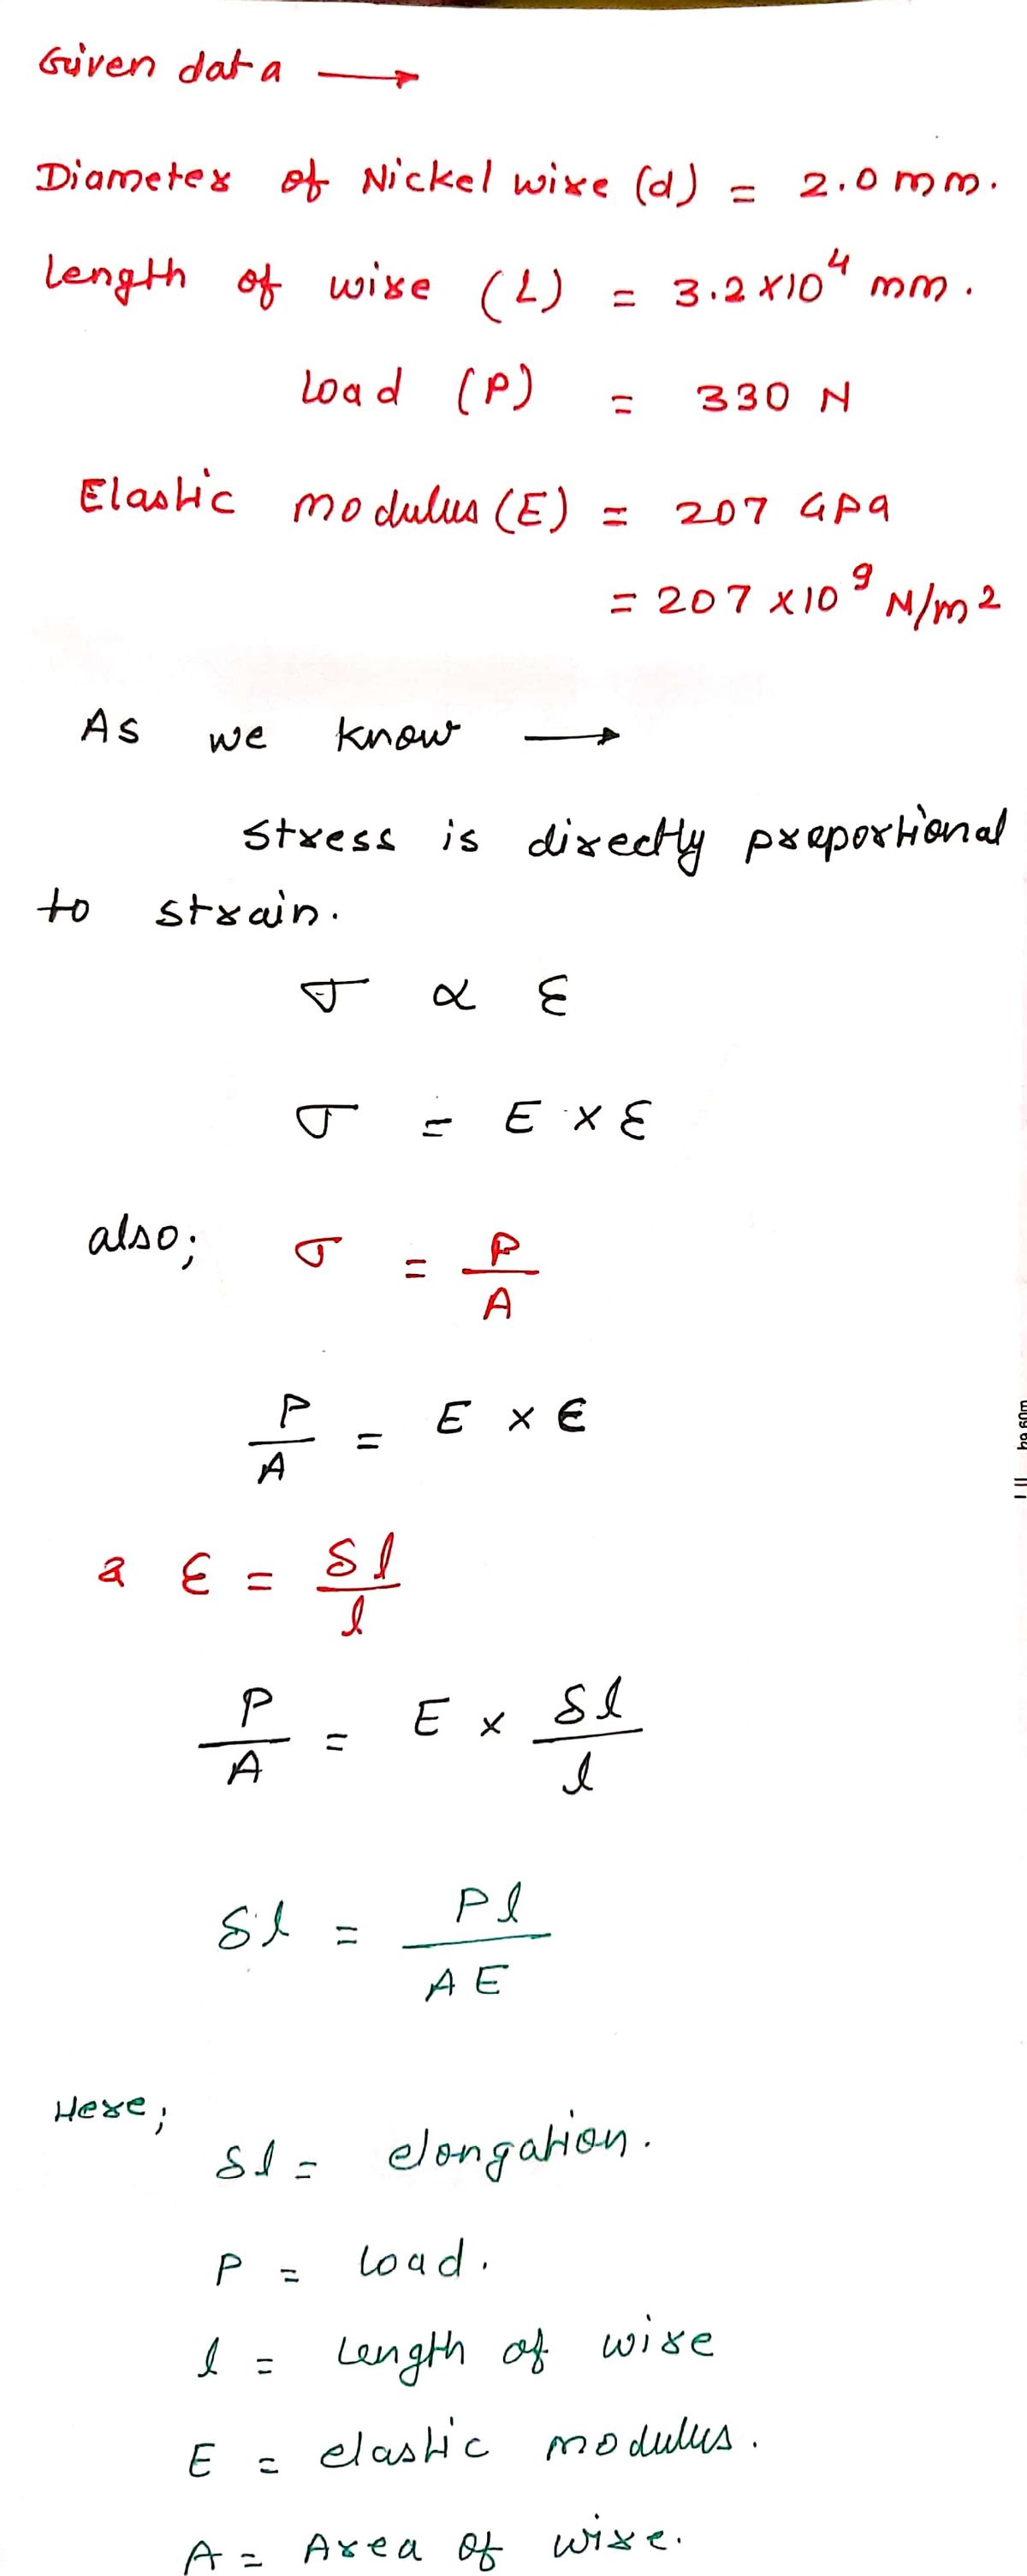 Given data →
Diameter of Nickel wire (d) = 2.0 mm.
Length of wire (L) = 3.2 × 10⁴ mm.
Load (P) = 330 N
Elastic modulus (E) = 207 GPa
= 207 × 10⁹ N/m²
As we know →
Stress is directly proportional
to strain.
σ ∝ ε
σ = E × ε
also; σ = P/A
P/A = E × ε
& ε = δl/l
P/A = E × δl/l
δl = Pl/AE
Here;
δl = elongation.
P = load.
l = Length of wire
E = elastic modulus.
A = Area of wire.